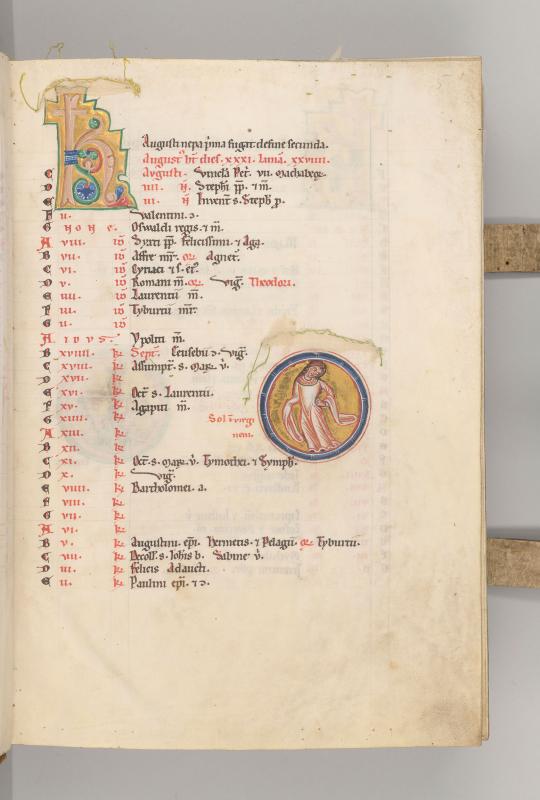 KL
Augusti nepa p̄ma fugat de fine secunda.
August' ht̄ dies. xxxi. Luna. xxviiii.
C Augusti. Vincla Pet̄. vii. Machabeoꝝ
D iiii. N̄. Stephī pp̄. ⁊ m̄.
E iii. N̄ Invent̄ s. Steph̄ p̄.
F ii. Valentini. ꝫ.
G None. Oswaldi regis ⁊ m̄.
A viii. id Syxti pp̄. felicissimi. ⁊ Aga.
B vii. Affre mr̄. Agnet̄.
C vi. Cyriaci ⁊ s. e.
D v. Romani m̄. vig̅. Theodori.
E iiii. Laurentii m̄.
F iii. Tyburtii mr̄.
G ii. id
A Idus. Ypoliti m̄.
B xviiii. kł Sept̄. Eusebii ꝫ. vig̅.
C xviii. kł Assumpt̄. s. Marie v̄.
D xvii. kł
E xvi. kł Oct̄ s. Laurentii.
F xv. kł Agapiti m̄.
G xiiii. kł Sol ī virgi
nem.
A xiii. kł
B xii. kł
C xi. kł Oct̄. s. Marie. v̄. Tymothei. ⁊ Symph̄.
D x. kł vig̅.
E viiii. kł Bartholomei. a.
F viii. kł
G vii. kł
A vi. kł
B v. kł Augustini. ep̄i. Hermetis. ⁊ Pelagii. Tyburtii.
C iiii. kł Decoll̄. s. Ioh̄is b. Sabine v̄.
D iii. kł felicis Adaucti.
E ii. kł Paulini ep̄i. ⁊ ꝫ.